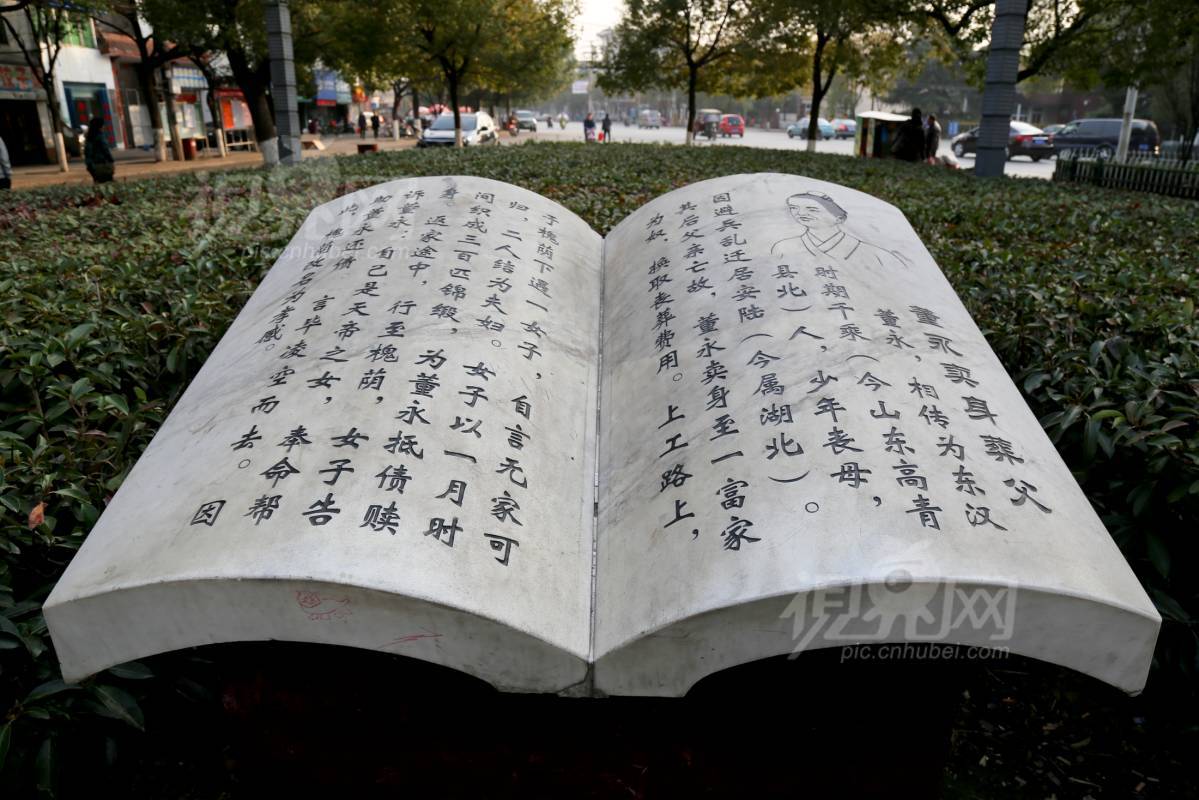 董永卖身葬父
董永，相传为东汉
时期千乘（今山东高青
县北）人，少年丧母，
因避兵乱迁居安陆（今属湖北）。
其后父亲亡故，董永卖身至一富家
为奴，换取丧葬费用。上工路上，
于槐荫下遇一女子，自言无家可
归，二人结为夫妇。女子以一月时
间织成三百匹锦缎，为董永抵债赎
身。返家途中，行至槐荫，女子告
诉董永：自己是天帝之女，奉命帮
助董永还债。言毕凌空而去。因
此，槐荫改名为孝感。
视界网
pic.cnhubei.com